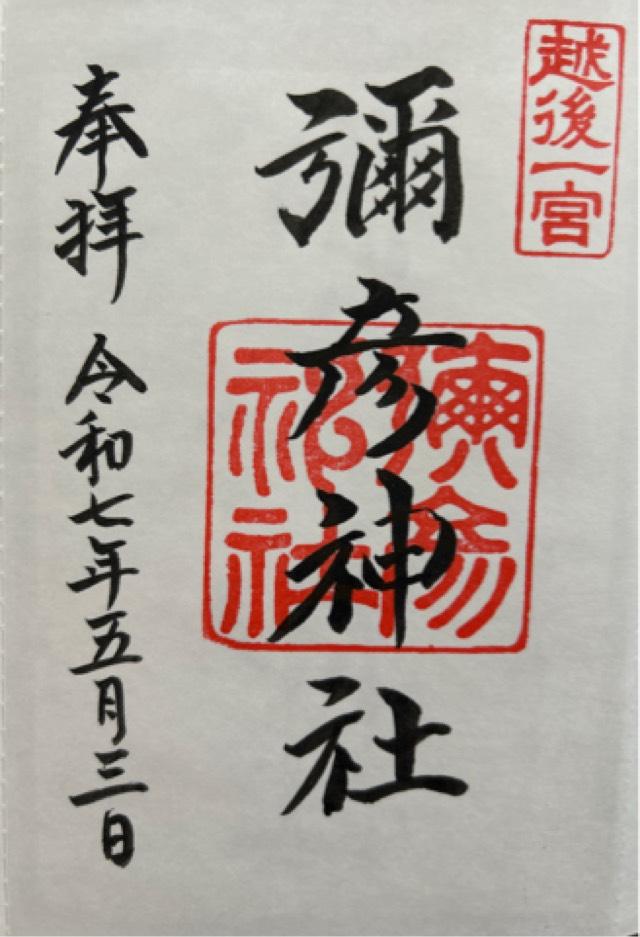 越後一宮
彌彦神社
彌彦神社
奉拝 令和七年五月三日